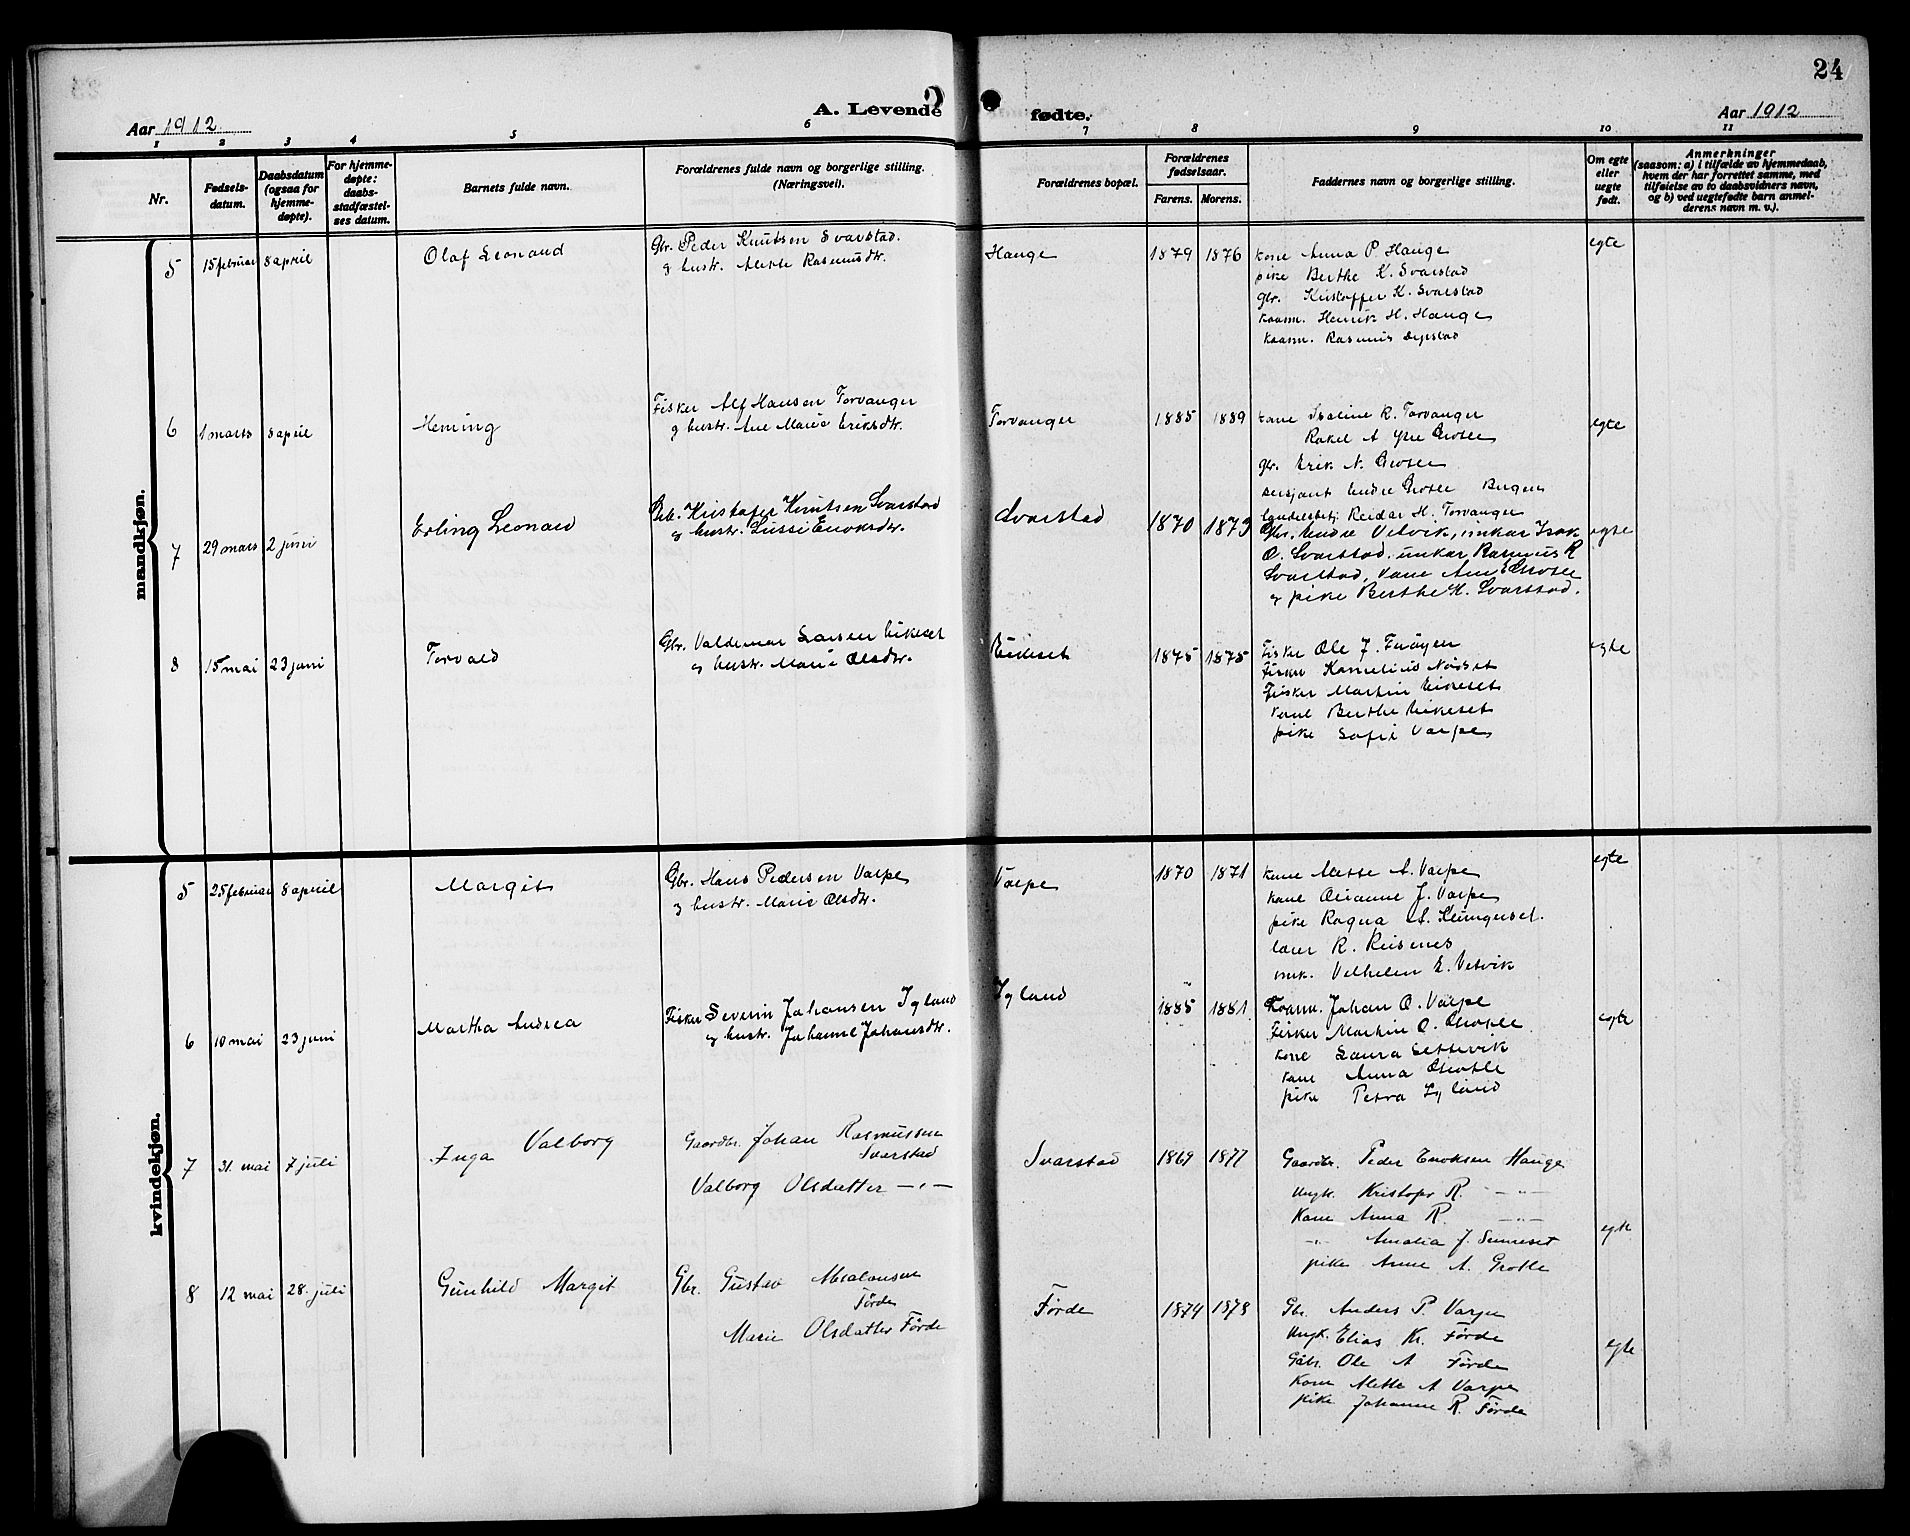 24
Aar 1912
A. Levende fødte.
Aar 1912
1 2 3 4 5 6 7 8 9 10 11
Nr.
Fødsels-
datum.
Daabsdatum
(ogsaa for
hjemme-
døpte).
For hjemme-
døpte:
daabs-
stadfæstel-
ses datum.
Barnets fulde navn.
Forældrenes fulde navn og borgerlige stilling.
(Næringsvei).
Forældrenes bopæl.
Forældrenes
fødselsaar.
Farens. Morens.
Faddernes navn og borgerlige stilling.
Om egte
eller
uegte
født.
Anmerkninger
(saasom: a) i tilfælde av hjemmedaab,
hvem der har forrettet samme, med
tilføielse av to daabsvidners navn,
og b) ved uegtefødte barn anmel-
derens navn m. v.).
mandkjøn.
5 15 februar 8 april Olaf Leonard
Gbr. Peder Knutsen Svarstad.
og hustr. Mette Rasmusdtr.
Hauge 1879 1876
Kone Anna P. Hauge
pike Berthe K. Svarstad
gbr. Kristoffer K. Svarstad
kaarm. Henrik H. Hauge
kaarm. Rasmus
egte
6 1 mars 8 april Heming
Fisker Alf Hansen Torvanger
og hustr. Ane Marie Eriksdtr.
Torvanger 1885 1889
kone R. Torvanger
Rakel A Grotle
gbr. Erik N. Grotle
sersjant Andre Grotle Bergen
Reidar H. Torvanger
egte
7 29 mars 2 juni Erling Leonard
Gbr. Kristofer Knutsen Svarstad
og hustr. Lussi Enoksdtr.
Svarstad 1870 1873
Gbr. Andre Vetvik, unkar Isak
O. Svarstad, unkar Rasmus R
Svarstad, kone Ane E Grotle
og pike Berthe K. Svarstad.
egte
8 15 mai 23 juni Torvald
Gbr. Valdemar Larsen Eikeset
og hustr. Marie Olsdtr.
Eikeset 1875 1875
Fisker Ole J.
Fisker Kornelius
Fisker Martin Eikeset
kone Berthe Eikeset
pike Sofie Varpe
egte
kvindekjøn.
5 25 februar 8 april Margit
Gbr. Hans Pedersen Varpe
og hustr. Marie Olsdtr.
Varpe 1870 1871
kone Mette A. Varpe
kone Orianne J. Varpe
pike Ragna A. Klungreset.
lærer R. Reisenes
unk. Vilhelm E. Vetvik
egte
6 10 mai 23 juni Martha Andrea
Fisker Severin Johansen Igland
og hustr. Johanne Johansdtr.
Igland 1885 1881
Kaarm. Johan O. Varpe
Fisker Martin O. Grotle
kone Laura Settevik
kone Anna Grotle
pike Petra Igland
egte
7 31. mai 7 juli Inga Valborg
Gaardbr. Johan Rasmussen
Svarstad
Valborg Olsdatter — „ —
Svarstad 1869 1877
Gaardbr. Peder Enoksen Hauge
Ungk. Kristofer R. — „ —
Kone Anna R. — „ —
— „ — Amalia J.
pike Anne A. Grotle
egte
8 12 mai 28. juli Gunhild Margit
Gbr. Gustav Absalonsen
Førde
Marie Olsdatter Førde
Førde 1874 1878
Gbr. Anders P. Varpe
Ungk. Elias Kr. Førde
Gbr. Ole A Førde
Kone Mette A Varpe
pike Johanne R. Førde
egte